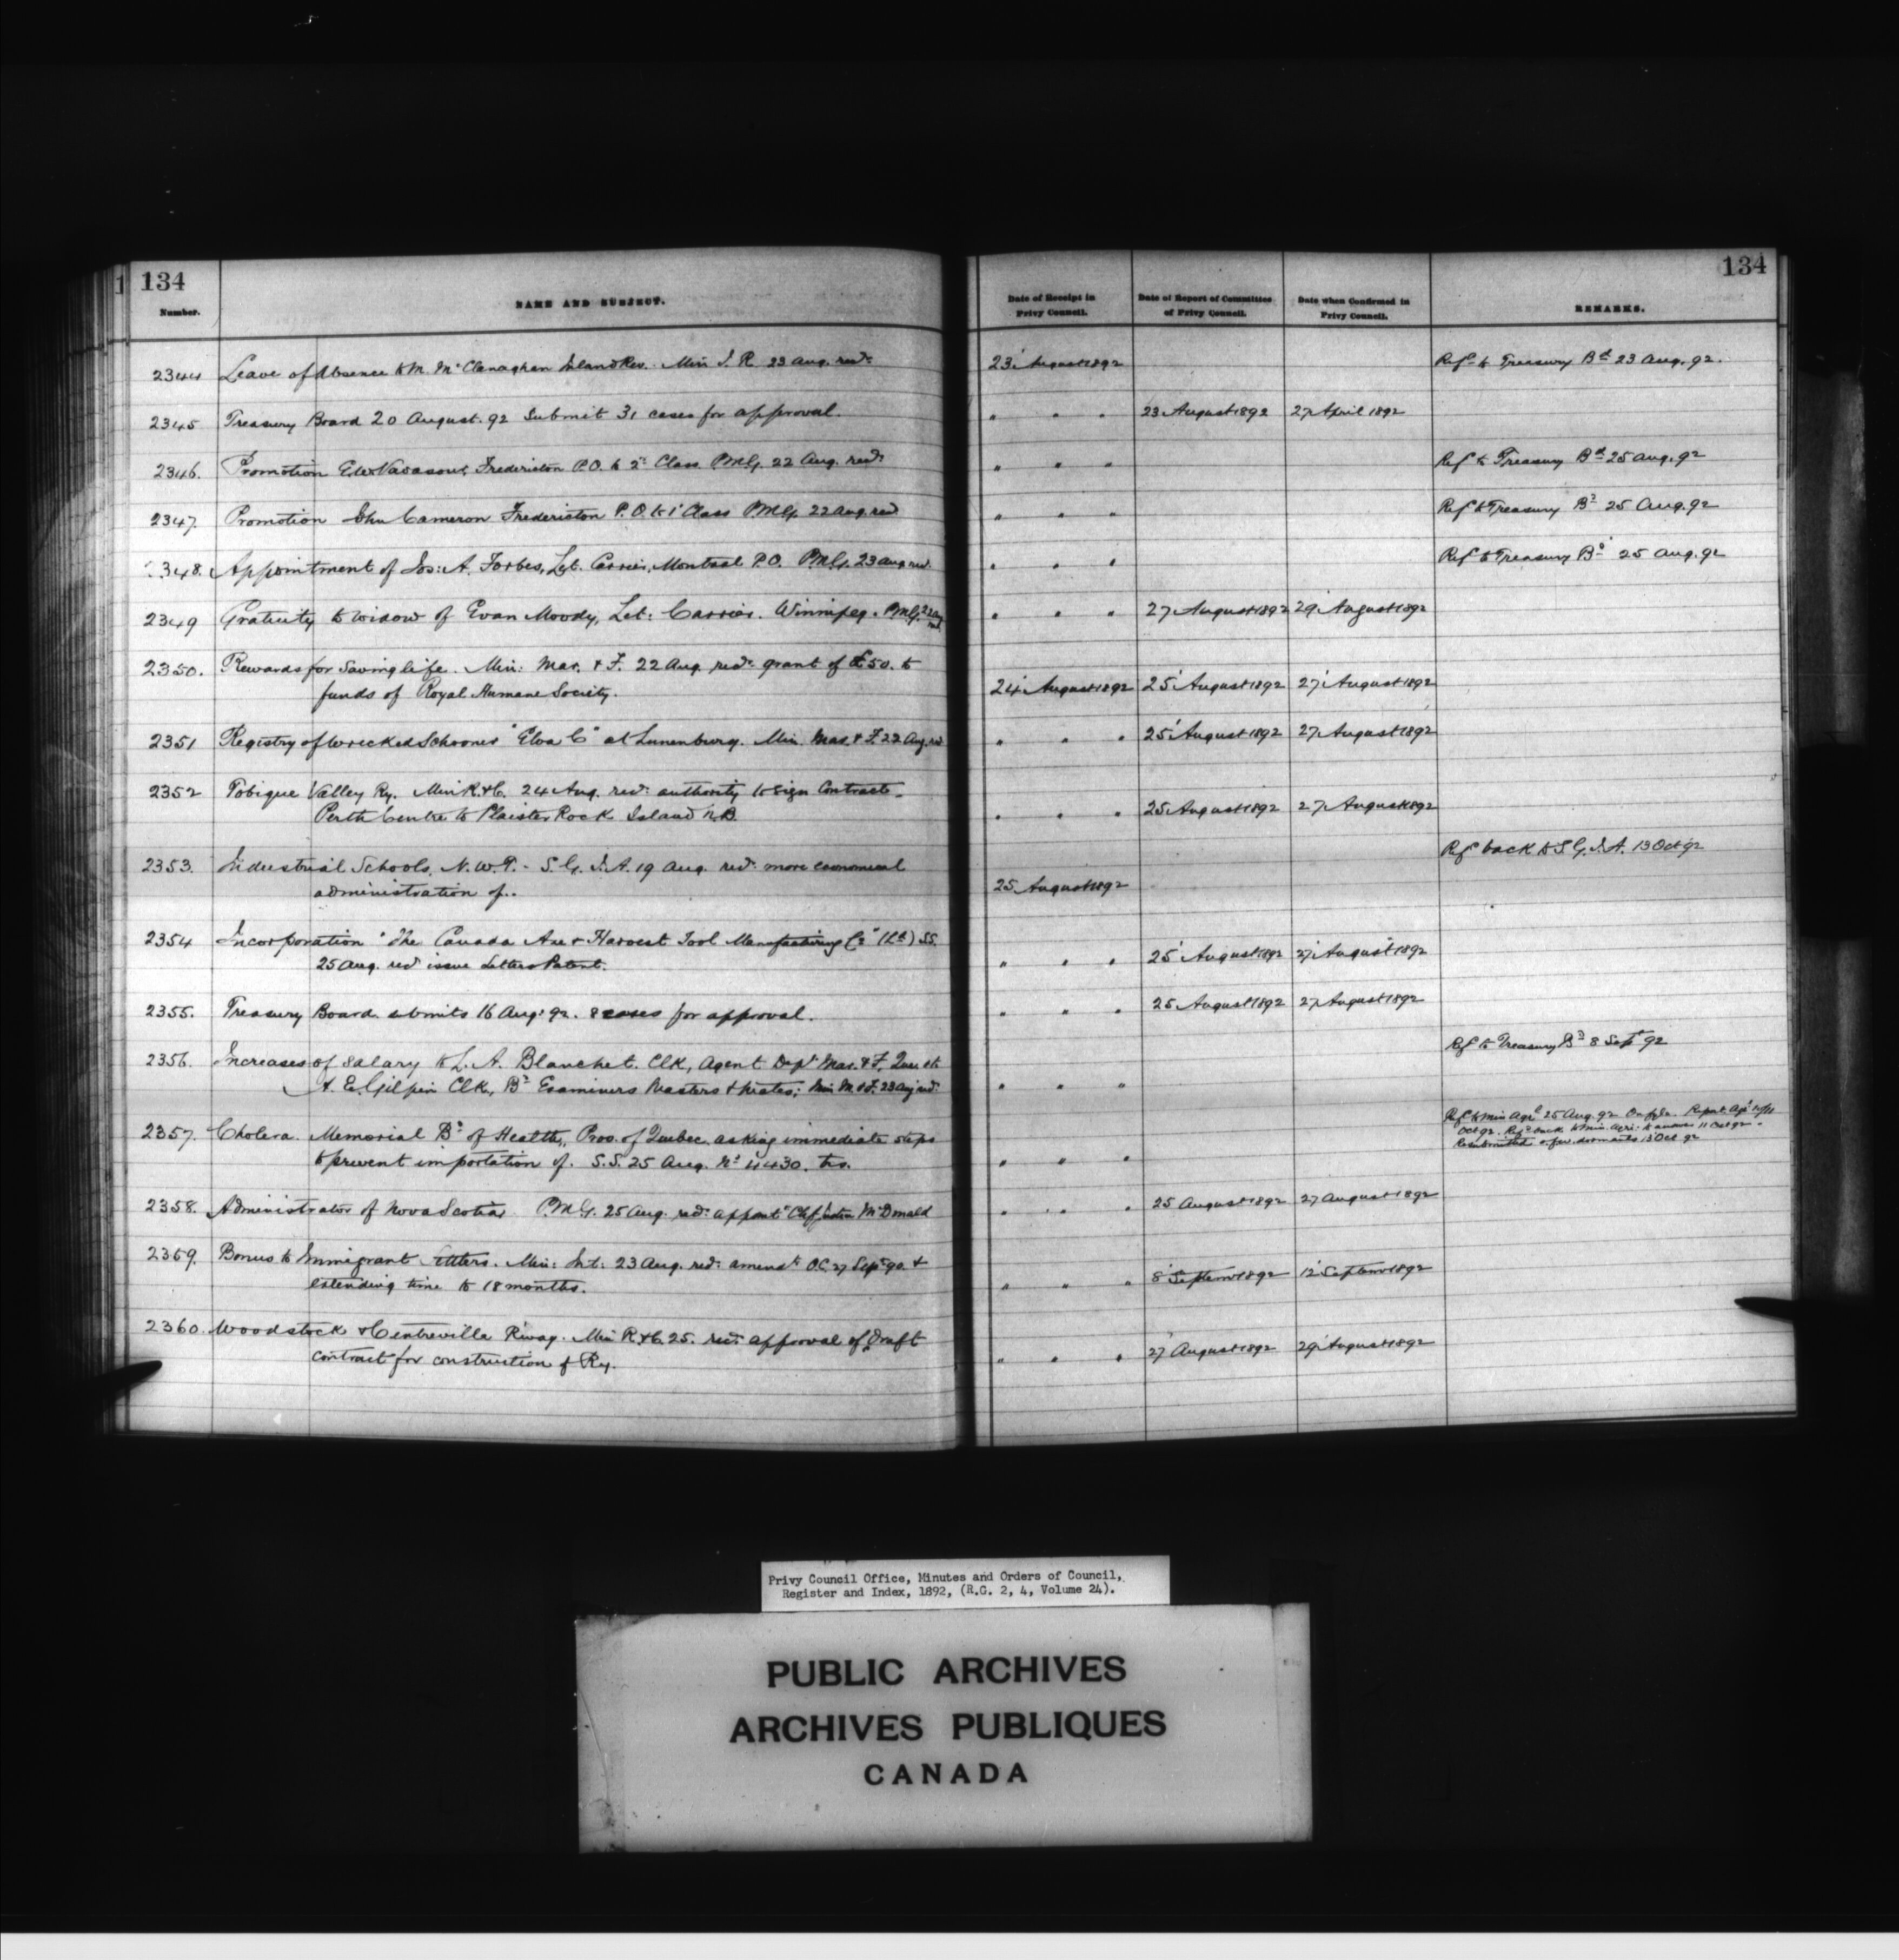 134
134
Number.
NAME AND SUBJECT.
Date of Receipt in Privy Council.
Date of Report of Committee of Privy Council.
Date when Confirmed in Privy Council.
REMARKS.
2344 Leave of Absence to M. McClanaghan Inland Rev. Min I. R. 23 Aug. recd: 23' August 1892 Refd to Treasury Bd 23 Aug. 92.
2345 Treasury Board 20 August. 92 Submit 31 cases for approval. " " " 23 August 1892 27 April 1892
2346. Promotion Fredericton P.O. to 2d Class. PMG. 22 Aug. recd: " " " Refd to Treasury Bd 25 Aug. 92
2347. Promotion John Cameron Fredericton P.O. to 1' Class PMG. 22 Aug recd " " " Refd to Treasury Bd 25 Aug. 92
2348. Appointment of Jos: A. Forbes, Let. Carrier, Montreal P.O. PMG. 23 Aug recd. " " " Refd to Treasury Bd 25 Aug. 92
2349 Gratuity to widow of Evan Moody, Let: Carrier. Winnipeg. PMG. 22 Aug recd. " " " 27 August 1892 29' August 1892
2350. Rewards for Saving life. Min: Mar. & F. 22 Aug recd: grant of £50. to
funds of Royal Humane Society. 24' August 1892 25' August 1892 27' August 1892
2351 Registry of wrecked Schooner "Elva C" at Lunenburg. Min. Mar. & F. 22 Aug. recd " " " 25' August 1892 27 August 1892
2352 Tobique Valley Ry. Min R. & C. 24 Aug. recd: authority to sign Contracts -
Perth Centre to Plaister Rock Island N.B. " " " 25 August 1892 27 August 1892
2353. Industrial Schools, N.W.T. - S. G. I. A. 19 Aug. recd: more economical Refd back to S.G.I.A. 13 Oct 92
administration of.. 25 August 1892
2354 Incorporation "The Canada Axe & Harvest Tool Manufacturing Co" (Ld) S.S.
25 Aug. recd issue Letters Patent. " " " 25' August 1892 27' August 1892
2355. Treasury Board submits 16 Aug: 92. 8 cases for approval. " " " 25 August 1892 27 August 1892
2356. Increases of Salary to L. A. Blanchet. Clk, Agent Dept Mar. & F, Quebec & Refd to Treasury Bd 8 Sept 92
A. E. Gilpin Clk, Bd Examiners Masters & Mates; Min M. & F. 23 Aug recd: " " "
2357. Cholera. Memorial Bd of Health, Prov. of Quebec asking immediate steps Refd to Min Agrl 25 Aug. 92
Oct 92. Refd back to Min. Agri: to amend 11 Oct 92.
to prevent importation of. S.S. 25 Aug. No 11430. " " " Resubmitted 13 Oct 92
2358. Administrator of Nova Scotia. P.M.G. 25 Aug. recd: appoint Chf Justice McDonald " " " 25 August 1892 27 August 1892
2359. Bonus to Immigrant Settlers. Min: Int: 23 Aug. recd: amendt O.C. 27 Sept 90. &
extending time to 18 months. " " " 8' September 1892 12' September 1892
2360. Woodstock & Centreville Rway. Min R. & C. 25. recd: approval of Draft
contract for construction of Ry. " " " 27' August 1892 29' August 1892
Privy Council Office, Minutes and Orders of Council,
Register and Index, 1892, (R.G. 2, 4, Volume 24).
PUBLIC ARCHIVES
ARCHIVES PUBLIQUES
CANADA